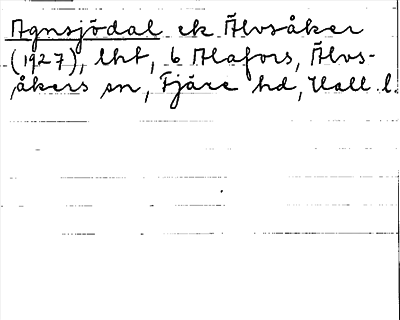 Agnsjödal ek Älvsåker
(1927), lht, 6 Alafors, Älvs-
åkers sn, Fjäre hd, Hall. l.